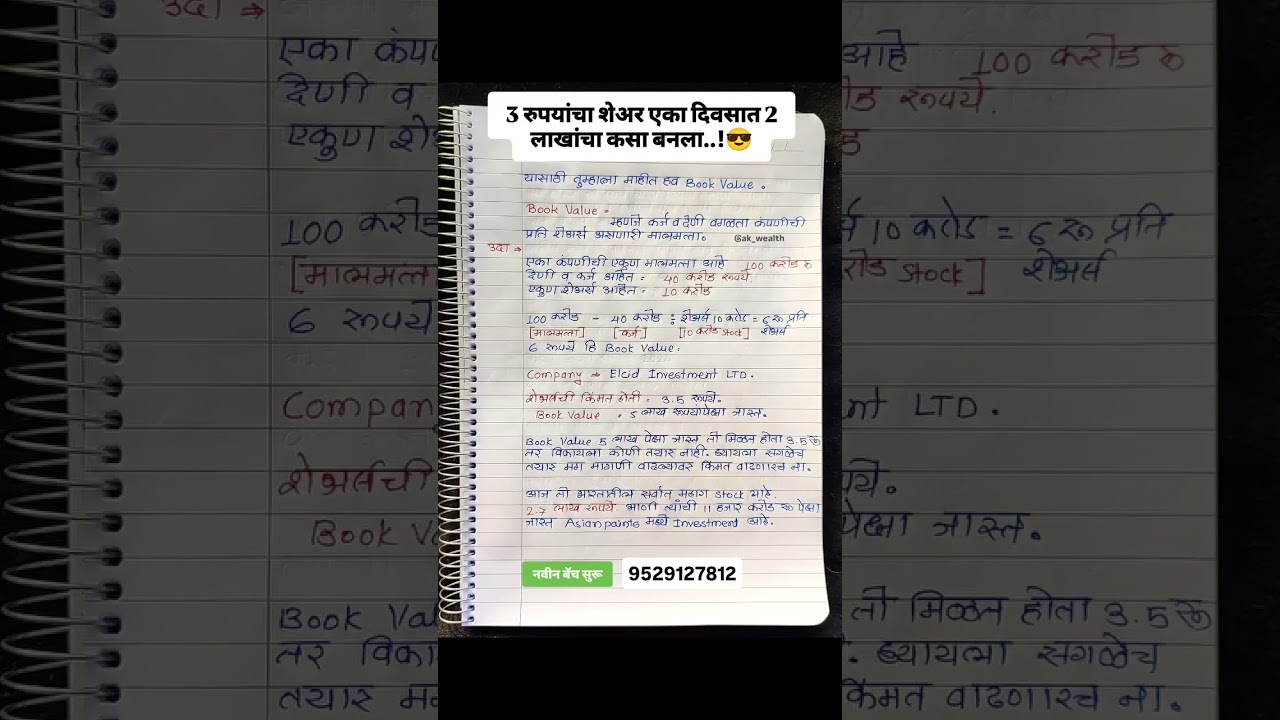 3 रुपयांचा शेअर एका दिवसात 2
लाखांचा कसा बनला..!😎
यासाठी तुम्हाला माहीत हवं Book Value .
Book Value =
म्हणजे कर्ज व देणी वगळता कंपणीची
प्रति शेअर्स असणारी मालमत्ता.
@ak_wealth
उदा →
एका कंपणीची एकुण मालमत्ता आहे 100 करोड रु
देणी व कर्ज आहेत = 40 करोड रूपये.
एकुण शेअर्स आहेत = 10 करोड
100 करोड - 40 करोड ÷ शेअर्स 10 करोड = 6 रू प्रति
[मालमत्ता] [कर्ज] [10 करोड stock] शेअर्स
6 रूपये हि Book Value.
Company → Elcid Investment LTD.
शेअर्सची किंमत होती = 3.5 रूपये.
Book Value = 5 लाख रूपयांपेक्षा जास्त.
Book Value 5 लाख पेक्षा जास्त तो मिळत होता 3.5 रू
तर विकायला कोणी तयार नाही. घ्यायला सगळेच
तयार मग मागणी वाढल्यावर किंमत वाढणारच ना.
आज तो भारतातील सर्वात महाग stock आहे.
2.7 लाख रूपये. आणी त्यांची 11 हजार करोड रू पेक्षा
जास्त Asian paints मध्ये Investment आहे.
नवीन बॅच सुरू
9529127812